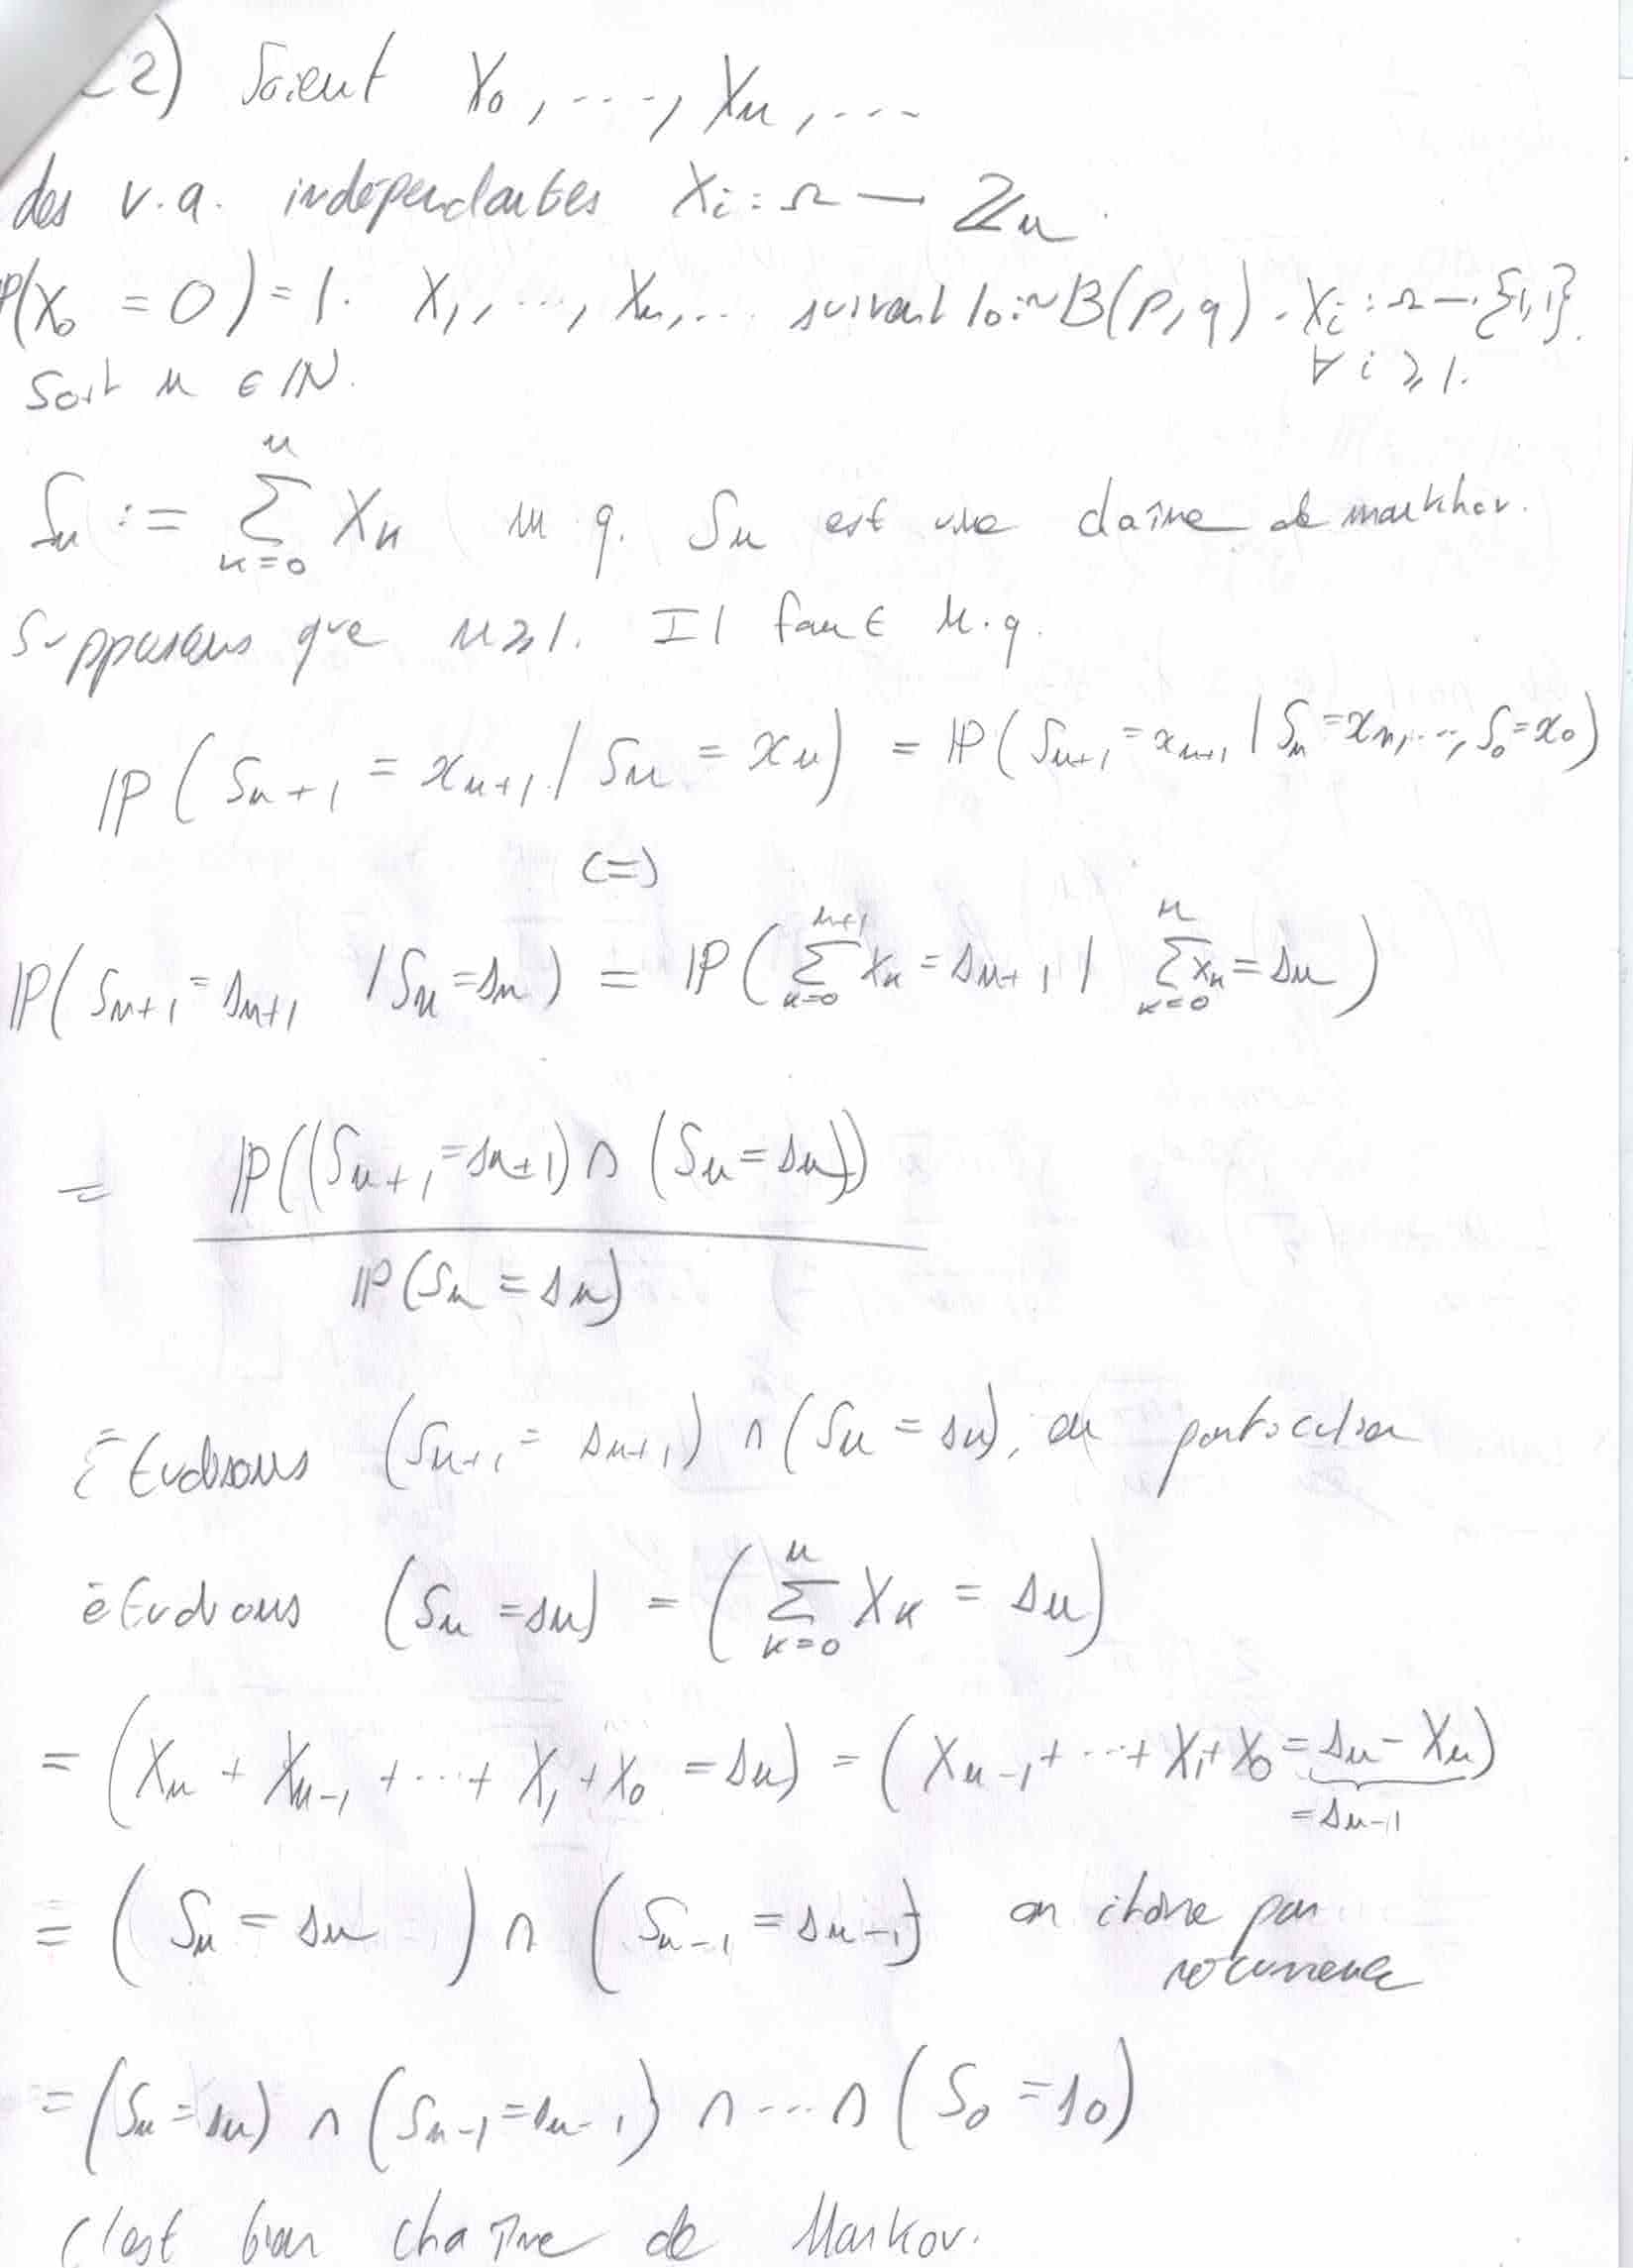 2) Soient X₀, ..., Xₙ, ...
des v.a. indépendantes Xᵢ : Ω — ℤₙ.
P(X₀ = 0) = 1. X₁, ..., Xₙ, ... suivant loi ~ B(p, q). Xᵢ : Ω — {1, 1}.
∀ i ⩾ 1.
Soit n ∈ ℕ.
Sₙ := ∑ₖ₌₀ⁿ Xₖ m q. Sₙ est une chaîne de markhov.
Supposons que n ⩾ 1. Il faut M.q.
ℙ(Sₙ₊₁ = xₙ₊₁ / Sₙ = xₙ) = ℙ(Sₙ₊₁ = xₙ₊₁ | Sₙ = xₙ, ..., S₀ = x₀)
(=)
ℙ(Sₙ₊₁ = sₙ₊₁ / Sₙ = sₙ) = ℙ(∑ₖ₌₀ⁿ⁺¹ Xₖ = sₙ₊₁ / ∑ₖ₌₀ⁿ Xₖ = sₙ)
= ℙ((Sₙ₊₁ = sₙ₊₁) ∩ (Sₙ = sₙ))
ℙ(Sₙ = sₙ)
Étudions (Sₙ₊₁ = sₙ₊₁) ∩ (Sₙ = sₙ), en particulier
étudions (Sₙ = sₙ) = (∑ₖ₌₀ⁿ Xₖ = sₙ)
= (Xₙ + Xₙ₋₁ + ... + X₁ + X₀ = sₙ) = (Xₙ₋₁ + ... + X₁ + X₀ = sₙ - Xₙ)
= sₙ₋₁
= (Sₙ = sₙ) ∩ (Sₙ₋₁ = sₙ₋₁) on itère par
récurrence
= (Sₙ = sₙ) ∩ (Sₙ₋₁ = sₙ₋₁) ∩ ... ∩ (S₀ = s₀)
C'est bien chaîne de Markov.